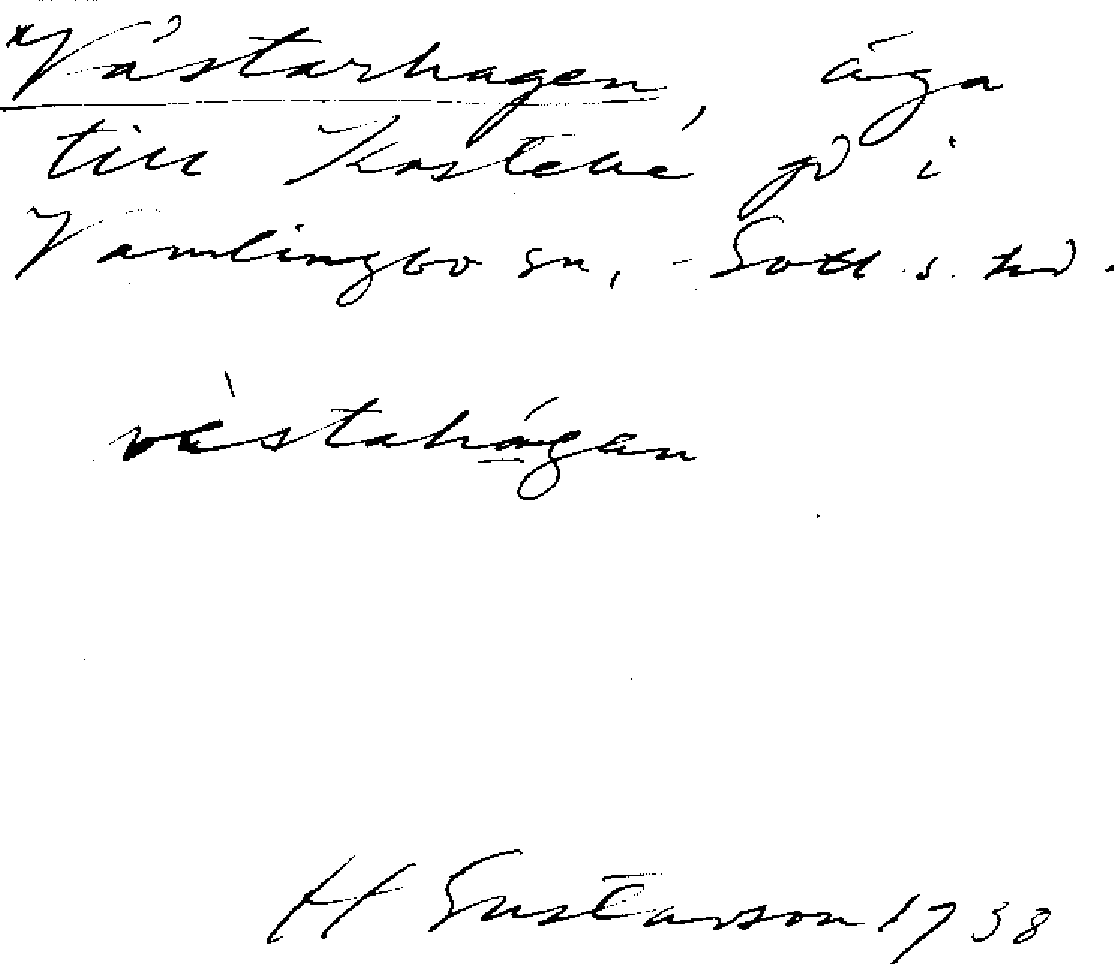 *Västarhagen, äga
till Kastelie gd i
Vamlingbo sn, Gotl. s. hd.
västahágen
H Gustavson 1938